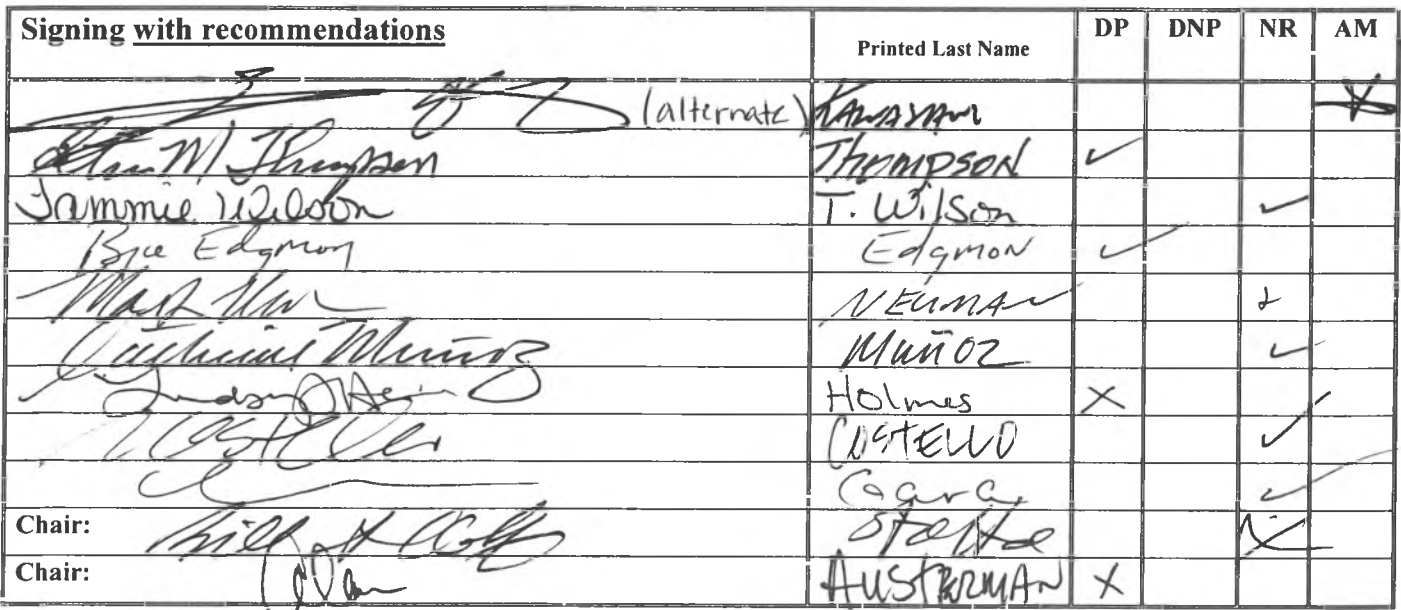 Signing with recommendations Printed Last Name DP DNP NR AM
(alternate) KAWASAKI X
Thompson THOMPSON ✓
Tammie Wilson T. Wilson ✓
Bryce Edgmon Edgmon ✓
NEUMAN
Muñoz Muñoz ✓
Holmes X
Costello COSTELLO ✓
Gara ✓
Chair: Stoltze
Chair: AUSTERMAN X